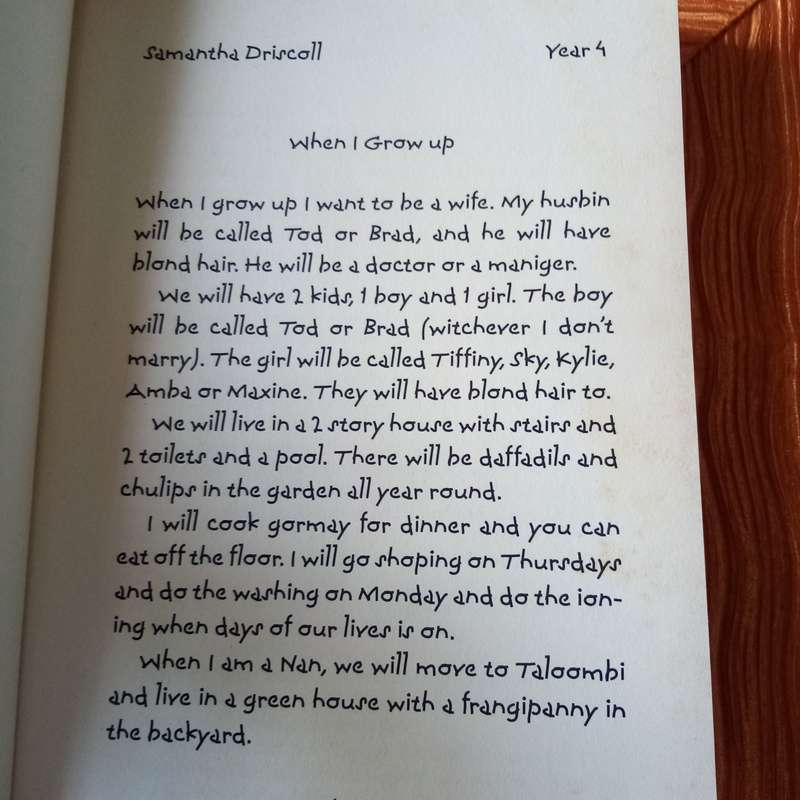 Samantha Driscoll Year 4
When I Grow up
When I grow up I want to be a wife. My husbin
will be called Tod or Brad, and he will have
blond hair. He will be a doctor or a maniger.
We will have 2 kids, 1 boy and 1 girl. The boy
will be called Tod or Brad (witchever I don't
marry). The girl will be called Tiffiny, Sky, Kylie,
Amba or Maxine. They will have blond hair to.
We will live in a 2 story house with stairs and
2 toilets and a pool. There will be daffadils and
chulips in the garden all year round.
I will cook gormay for dinner and you can
eat off the floor. I will go shoping on Thursdays
and do the washing on Monday and do the ion-
ing when days of our lives is on.
When I am a Nan, we will move to Taloombi
and live in a green house with a frangipanny in
the backyard.